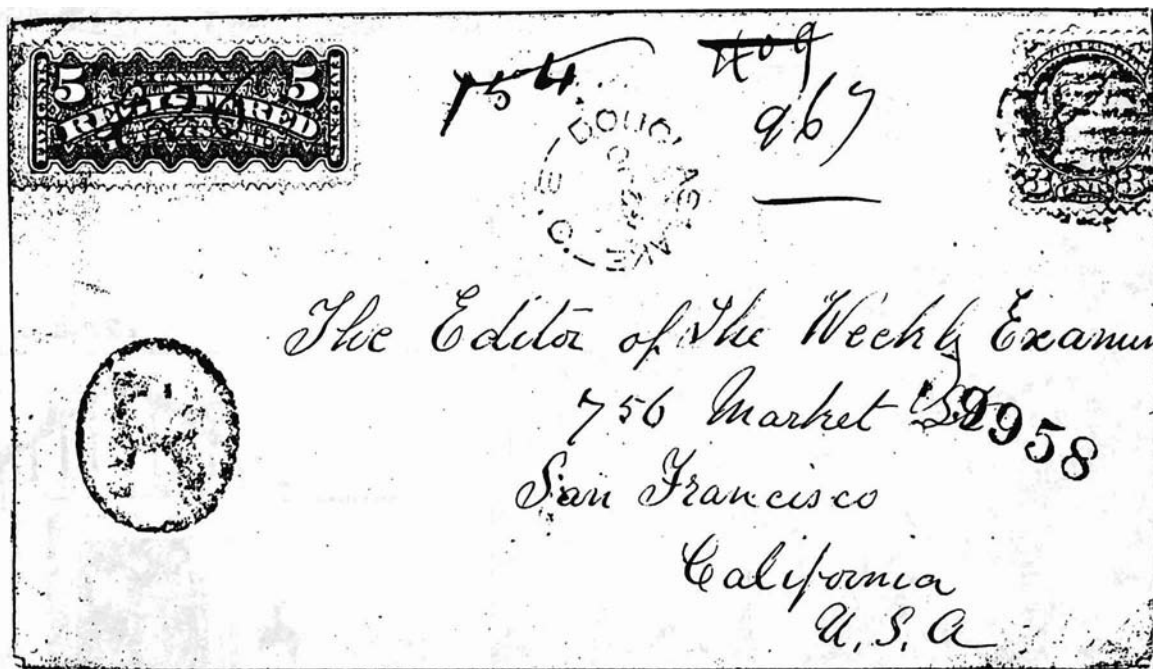 5 CANADA 5
REGISTERED
754
409
967
DOUGLAS LAKE
3 CENTS 3
R
The Editor of the Weekly Examin
756 Market St
9958
San Francisco
California
U.S.A